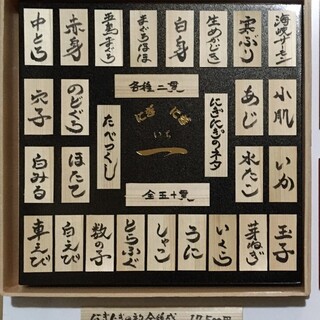 海峡サーモン
寒ぶり
生めかじき
白身
まぐろほほ
五島まぐろ
赤身
中とろ
小肌
あじ
のどぐろ
穴子
各種二貫
にぎにぎ
いち
一
にぎにぎのネタ
たべつくし
いか
水たこ
ほたて
白みる
全五十貫
玉子
芽ねぎ
いくら
うに
しゃこ
とらふぐ
数の子
白えび
車えび